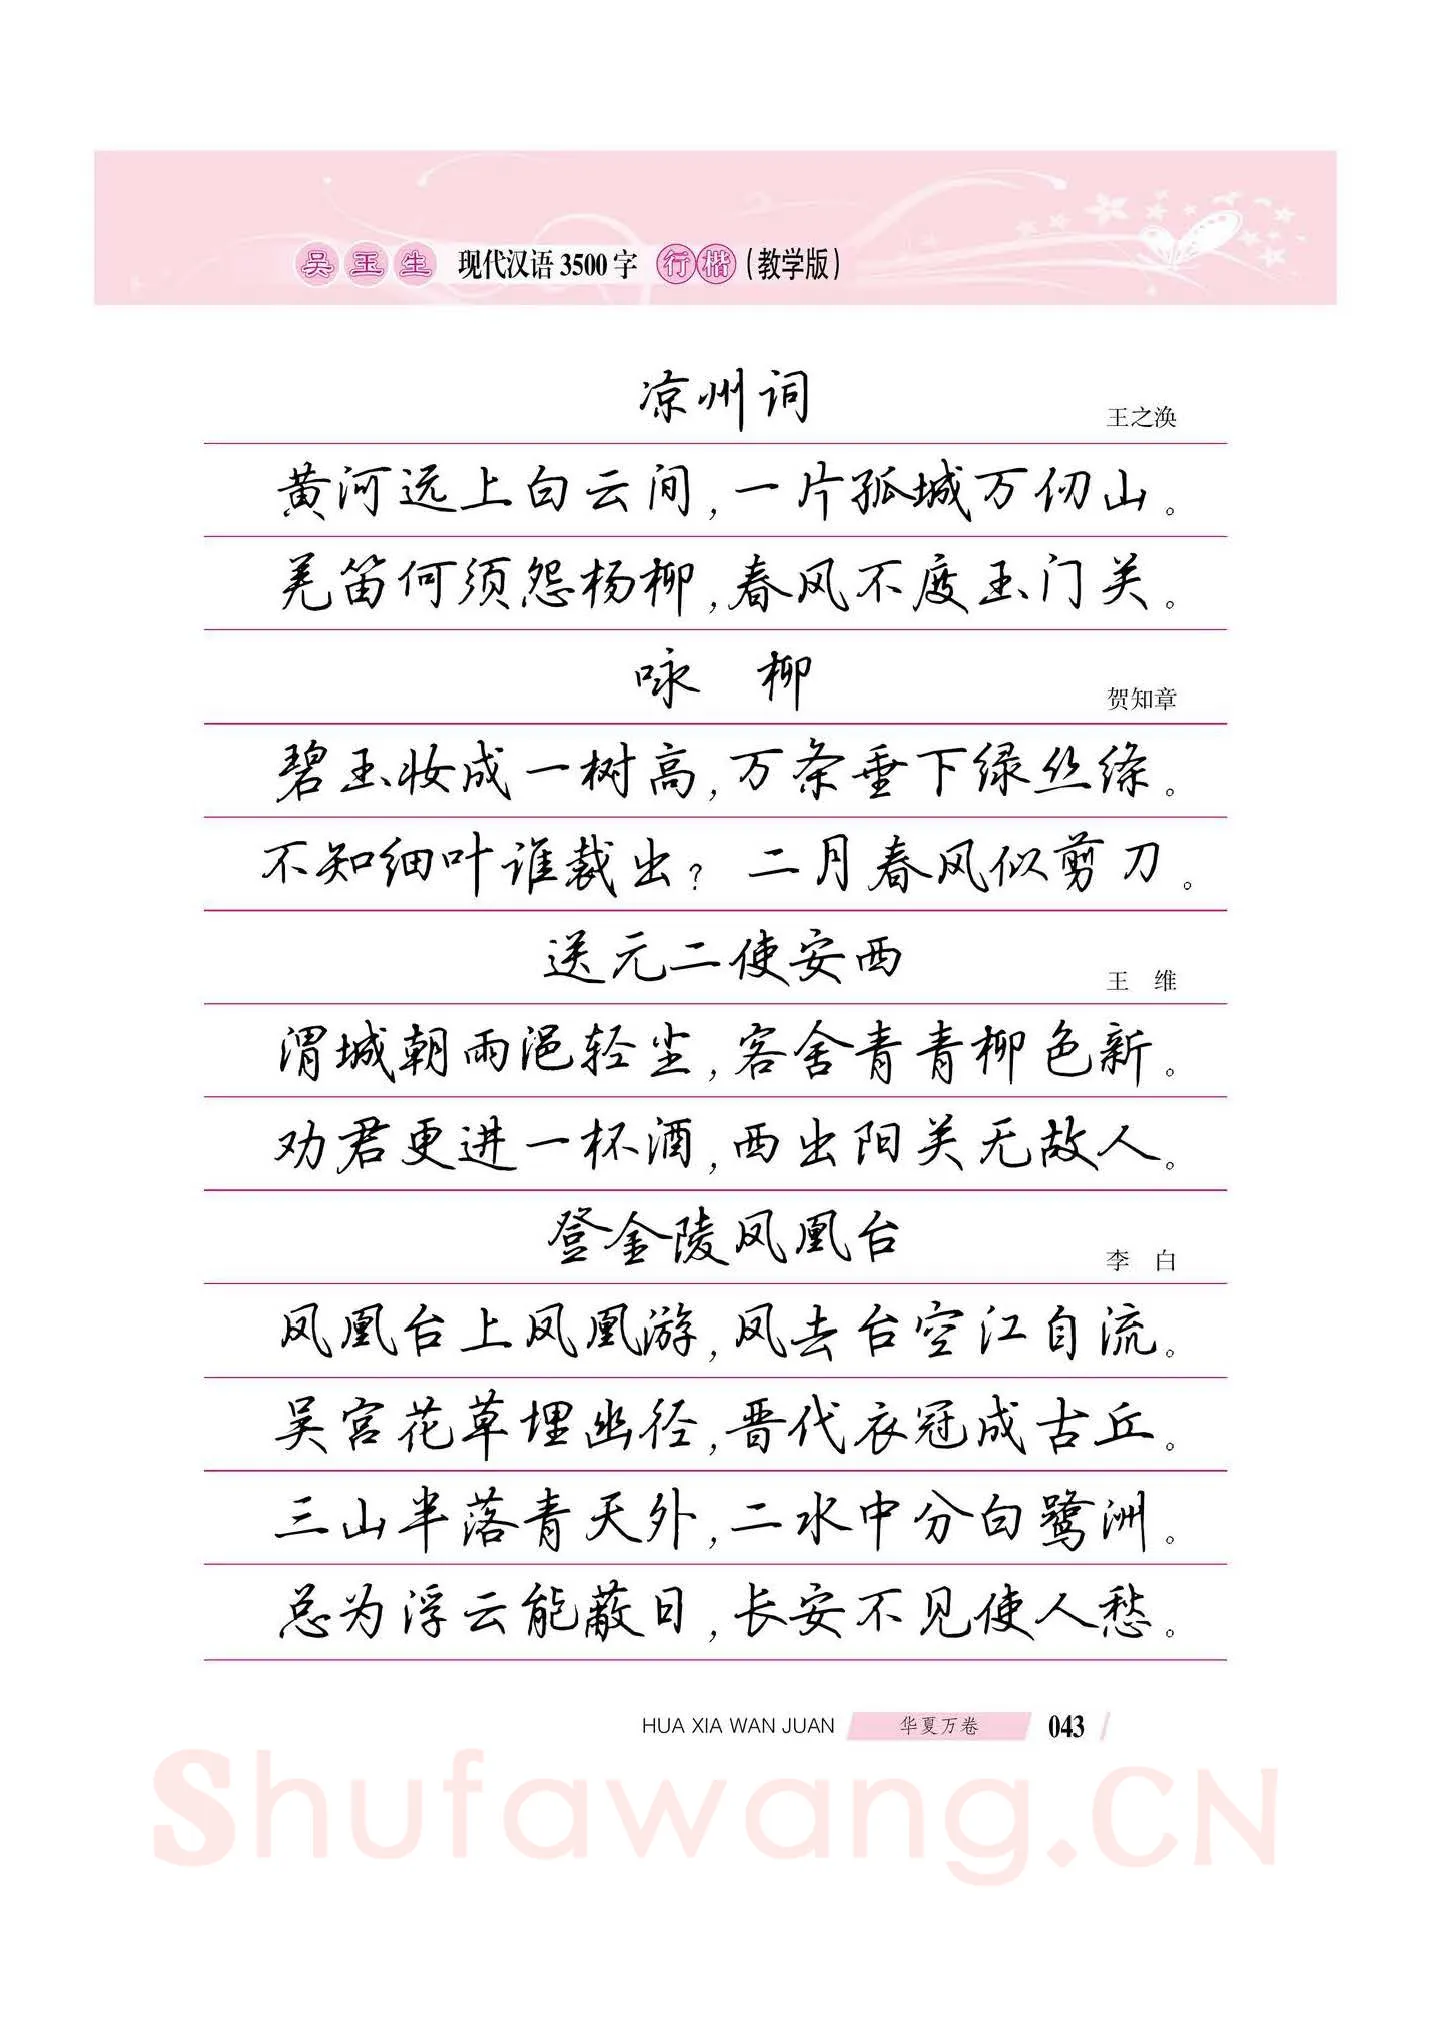 吴玉生 现代汉语3500字 行楷(教学版)
凉州词
王之涣
黄河远上白云间,一片孤城万仞山。
羌笛何须怨杨柳,春风不度玉门关。
咏 柳
贺知章
碧玉妆成一树高,万条垂下绿丝绦。
不知细叶谁裁出?二月春风似剪刀。
送元二使安西
王 维
渭城朝雨浥轻尘,客舍青青柳色新。
劝君更进一杯酒,西出阳关无故人。
登金陵凤凰台
李 白
凤凰台上凤凰游,凤去台空江自流。
吴宫花草埋幽径,晋代衣冠成古丘。
三山半落青天外,二水中分白鹭洲。
总为浮云能蔽日,长安不见使人愁。
HUA XIA WAN JUAN 华夏万卷 043
Shufawang.CN